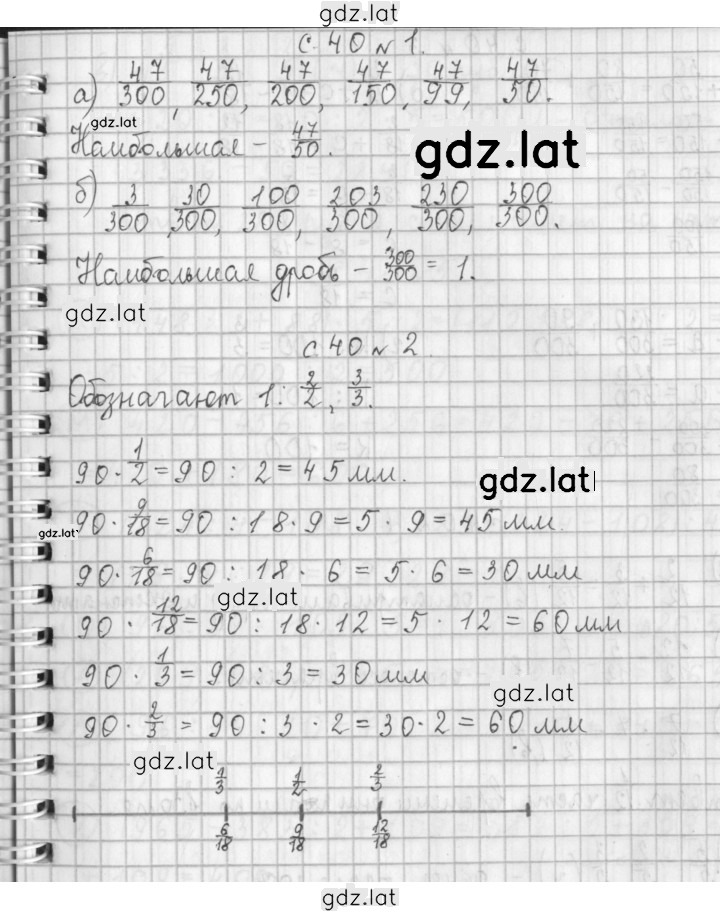 gdz.lat
с. 40 № 1.
а) 47/300, 47/250, 47/200, 47/150, 47/99, 47/50.
gdz.lat
Наибольшая – 47/50.
gdz.lat
б) 3/300, 30/300, 100/300, 203/300, 230/300, 300/300.
Наибольшая дробь – 300/300 = 1.
gdz.lat
с. 40 № 2.
Обозначают 1: 2/2, 3/3.
90 · 1/2 = 90 : 2 = 45 мм.
gdz.lat
90 · 9/18 = 90 : 18 · 9 = 5 · 9 = 45 мм.
gdz.lat
90 · 6/18 = 90 : 18 · 6 = 5 · 6 = 30 мм
gdz.lat
90 · 12/18 = 90 : 18 · 12 = 5 · 12 = 60 мм
90 · 1/3 = 90 : 3 = 30 мм
gdz.lat
90 · 2/3 = 90 : 3 · 2 = 30 · 2 = 60 мм
gdz.lat
1/3 1/2 2/3
6/18 9/18 12/18
gdz.lat